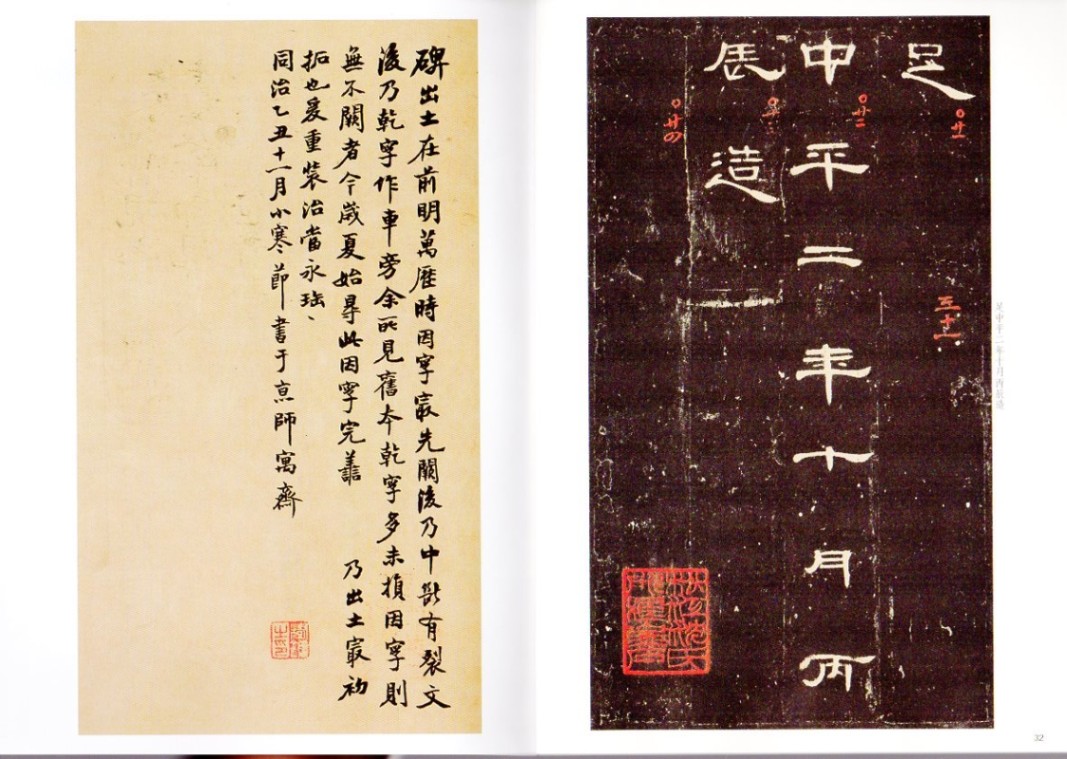 足
中平二年十月丙
辰造
〇廿一
〇廿二
〇廿四
三十一
足中平二年十月丙辰造
32
碑出土在前明萬厯時因字最先闕後乃中斷有裂文
後乃乾字作車旁余所見舊本乾字多未損因字則
無不闕者今歲夏始尋此因字完善 乃出土最初
拓也爰重裝治當永珤、
同治乙丑十一月小寒節書于京師寓齋